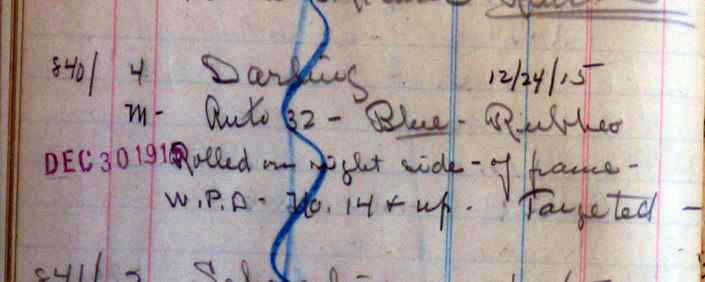 840/ 4 Darling 12/24/15
m- Auto 32 - Blue - Rubber
DEC 30 191 Rolled on right side - of frame -
W.P.A. No. 14 + up. Targeted -
841/